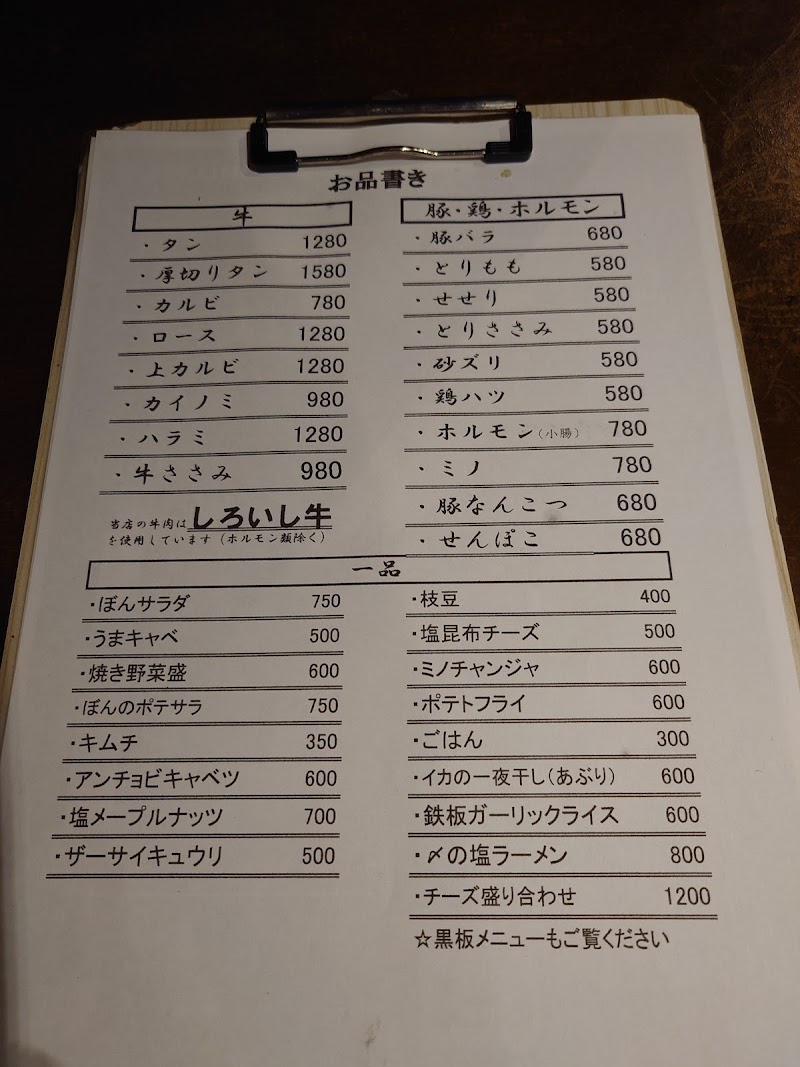 お品書き
牛
・タン 1280
・厚切りタン 1580
・カルビ 780
・ロース 1280
・上カルビ 1280
・カイノミ 980
・ハラミ 1280
・牛ささみ 980
当店の牛肉はしろいし牛
を使用しています(ホルモン類除く)
豚・鶏・ホルモン
・豚バラ 680
・とりもも 580
・せせり 580
・とりささみ 580
・砂ズリ 580
・鶏ハツ 580
・ホルモン(小腸) 780
・ミノ 780
・豚なんこつ 680
・せんぽこ 680
一品
・ぼんサラダ 750
・うまキャベ 500
・焼き野菜盛 600
・ぼんのポテサラ 750
・キムチ 350
・アンチョビキャベツ 600
・塩メープルナッツ 700
・ザーサイキュウリ 500
・枝豆 400
・塩昆布チーズ 500
・ミノチャンジャ 600
・ポテトフライ 600
・ごはん 300
・イカの一夜干し(あぶり) 600
・鉄板ガーリックライス 600
・〆の塩ラーメン 800
・チーズ盛り合わせ 1200
☆黒板メニューもご覧ください